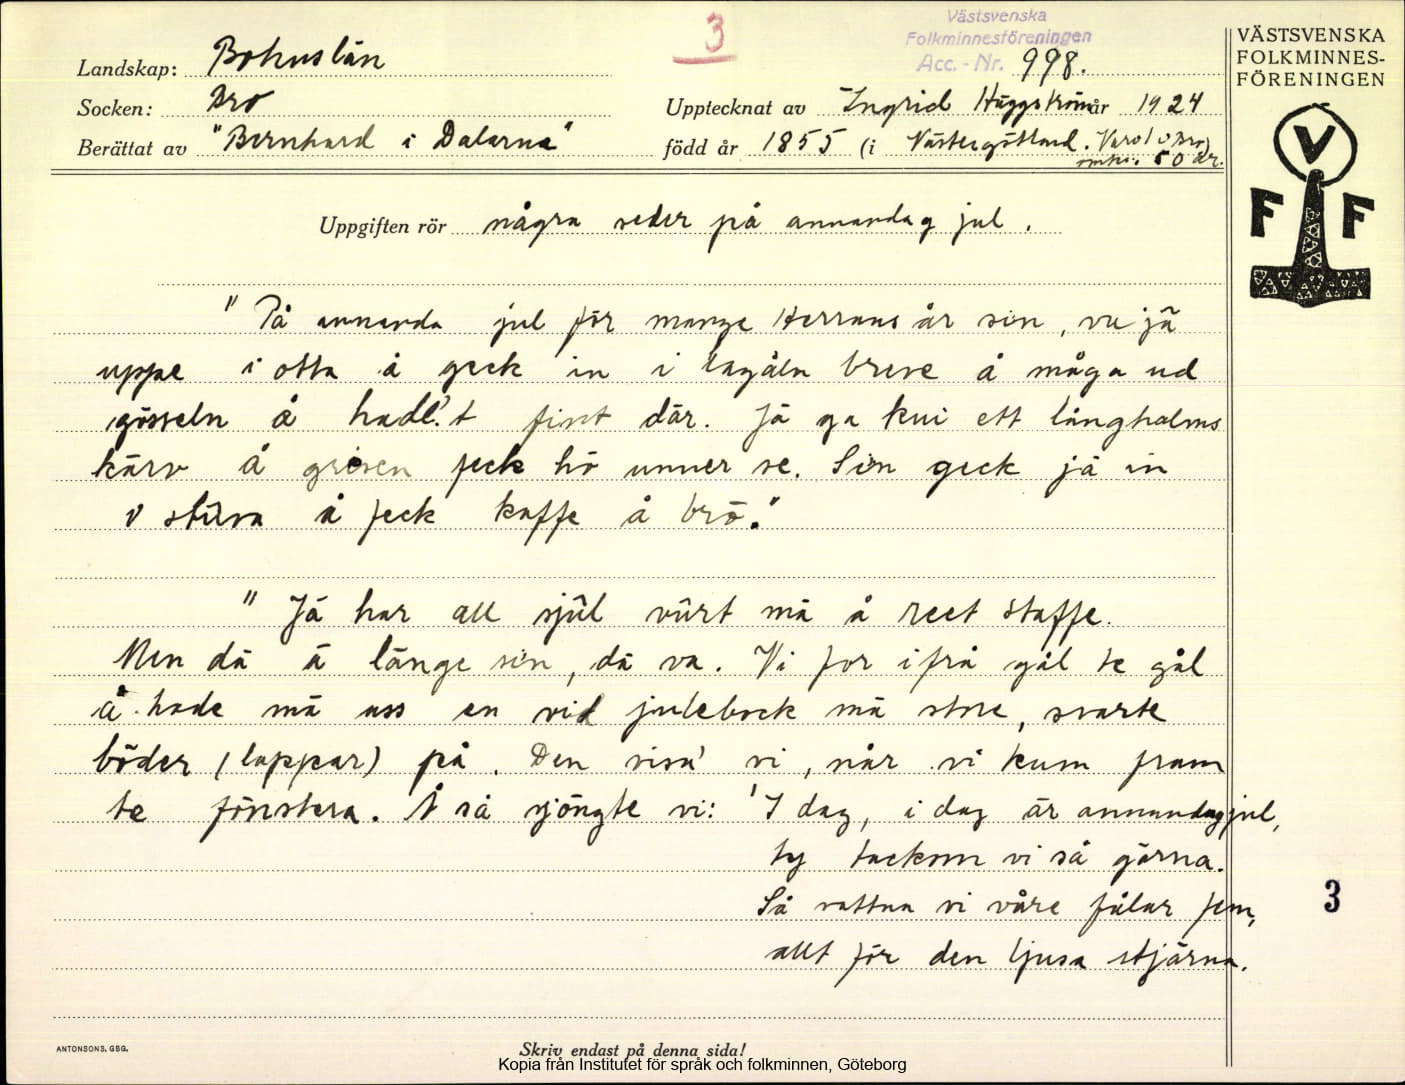 3
Västsvenska
Folkminnesföreningen
Acc.-Nr. 998.
VÄSTSVENSKA
FOLKMINNES-
FÖRENINGEN
V
F F
Landskap: Bohuslän
Socken: Bro
Upptecknat av Ingrid Häggström år 1924
Berättat av "Bernhard i Dalarna"
född år 1855 (i Västergötland. Varit i Bro)
omkr. 50 år.
Uppgiften rör några seder på annandag jul.
"På annanda jul för mange Herrans år sin, va jä
uppe i otta å geck in i breve å måga ud
gösseln å hadl't fint där. Jä ga kui ett långhalms
kärv å grisen feck hö unner se. Sin geck jä in
i stûva å feck kaffe å brö."
"Jä har all sjûl vûrt mä å reet Staffe.
Men dä ä länge sin, dä va. Vi for ifrå gål te gål
å hade mä uss en vid julebock mä store, svarte
böder (lappar) på. Den visa' vi, når vi kum fram
te fönstera. Å så sjöngte vi: 'I dag, i dag är annandag jul,
ty tackom vi så gärna.
Så vattna vi våre fålar fem,
allt för den ljusa stjärna.
3
ANTONSONS, GBG.
Skriv endast på denna sida!
Kopia från Institutet för språk och folkminnen, Göteborg